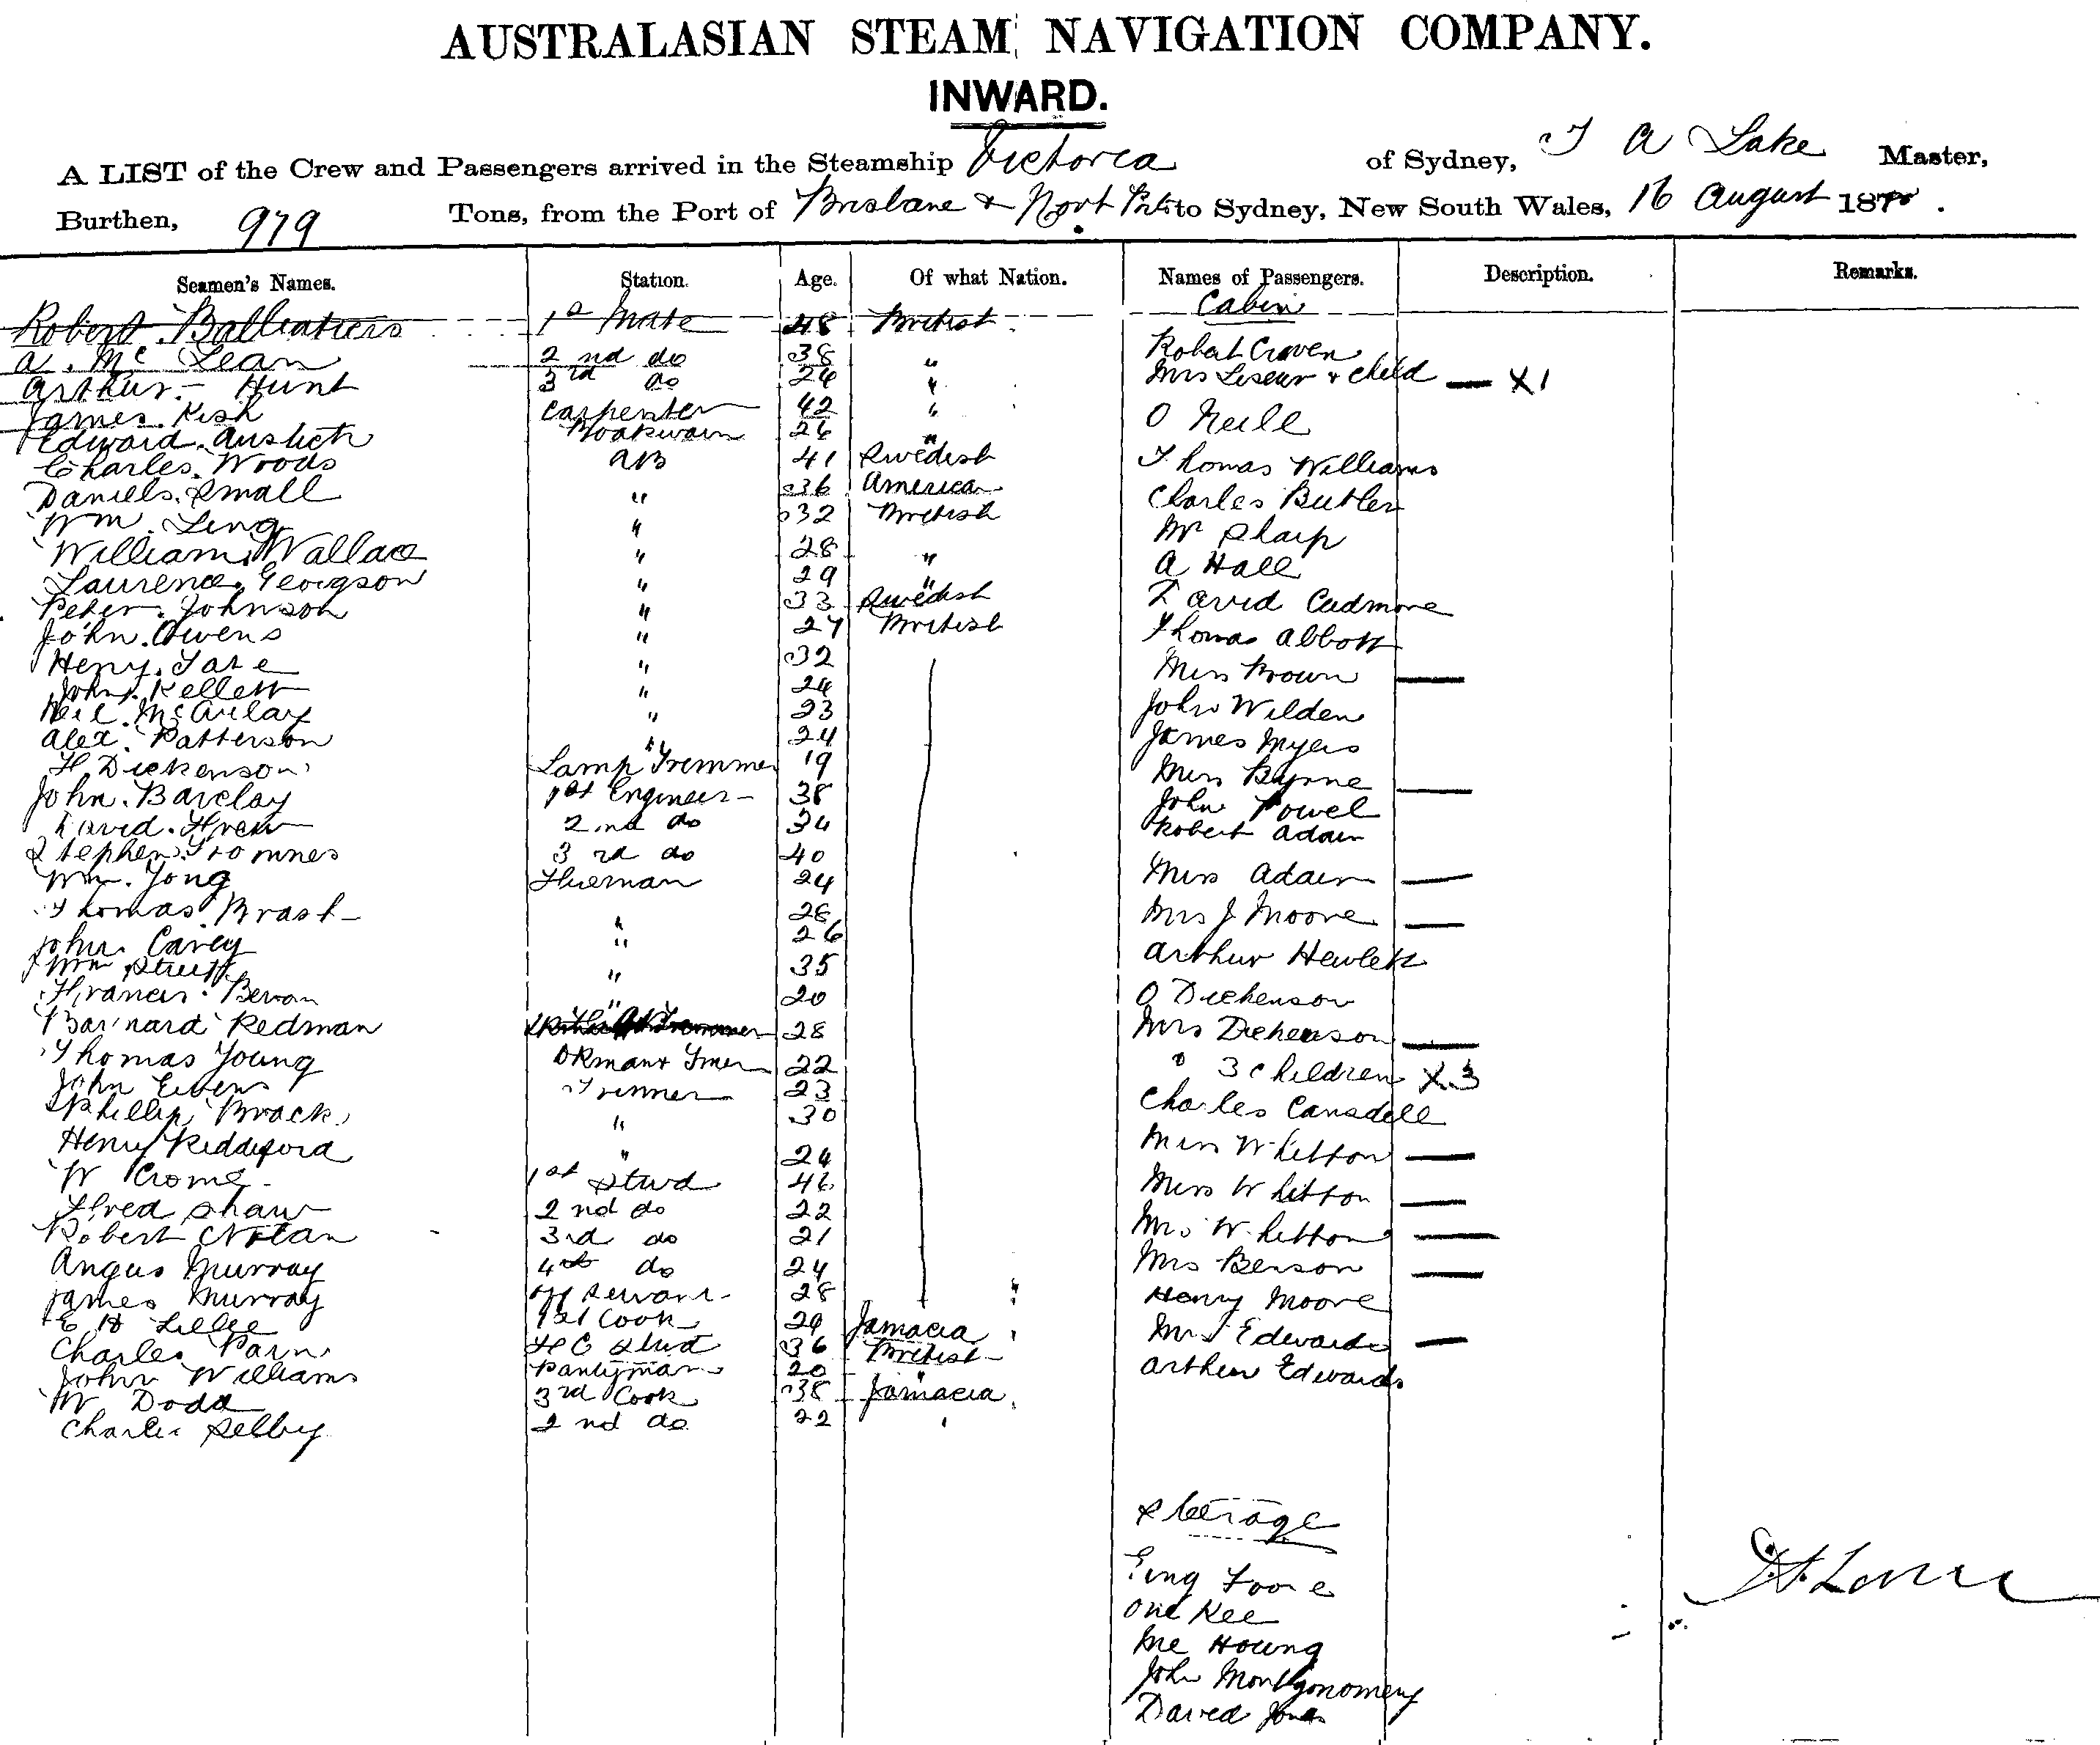 AUSTRALASIAN STEAM NAVIGATION COMPANY.
INWARD.
A LIST of the Crew and Passengers arrived in the Steamship Victoria of Sydney, T A Lake Master,
Burthen, 979 Tons, from the Port of Brisbane & Nort Pts to Sydney, New South Wales, 16 August 18
Seamen's Names. Station. Age. Of what Nation. Names of Passengers. Description. Remarks.
Cabin
Robert 1st Mate 48 British
A. Mc Lean 2nd do 38 " Robert Craven
Arthur Hunt 3rd do 26 " Mrs Leseur & child — X1
James Kish Carpenter 42 " O Neile
Edward Boatswain 26 "
Charles Woods AB 41 Swedish Thomas Williams
Daniels Small " 36 America Charles Butler
Wm Ling " 32 British Mr Sharp
William Wallace " 28 " A Hall
Laurence Georgson " 29 " David Cadmore
Peter Johnson " 33 Swedish Thomas Abbott
John Owens " 27 British Miss Brown —
Heny Tate " 32 John Wilden
John Kellett " 24 James Myers
Neil McAulay " 23 Miss Byrne —
Alex Patterson " 24 John Powel
H Dickenson Lamp Trimmer 19 Robert Adair
John Barclay 1st Engineer 38 Miss Adair —
David 2nd do 34 Mrs J Moore —
Stephen 3rd do 40 Arthur Hewlett
Wm Tong Fireman 24 O Dickenson
Thomas Brast " 28 Mrs Dickenson —
John Carey " 26 " 3 children X3
Wm " 35 Charles Cansdell
Francis Bevan " 20 Miss Whitton —
Barnard Redman 28 Miss Whitton —
Thomas Young 22 Mrs Whitton —
John Evens Trimmer 23 Mrs Benson —
Phillip Brack " 30 Henry Moore
Henry Riddiford " 24 Mrs Edwards —
W Crome 1st Stwd 46 Arthur Edwards
Fred Shaw 2nd do 22
Robert Nolan 3rd do 21
Angus Murray 4th do 24
James Murray Servant 28
E H Lillie 1st Cook 29 Jamacia
Charles Parn Stwd 36 British
John Williams Pantyman 20 "
W Dodd 3rd Cook 38 Jamacia
Charlie Selby 2nd do 22
Steerage
One Kee
Me Houng
John Montgonomery
David Jones